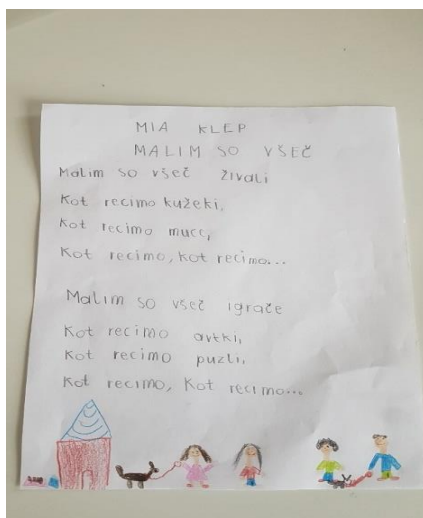 MIA KLEP
MALIM SO VŠEČ
Malim so všeč živali
Kot recimo kužeki,
Kot recimo mucc,
Kot recimo, kot recimo...
Malim so všeč igrače
Kot recimo avtki,
Kot recimo puzli,
Kot recimo, Kot recimo...